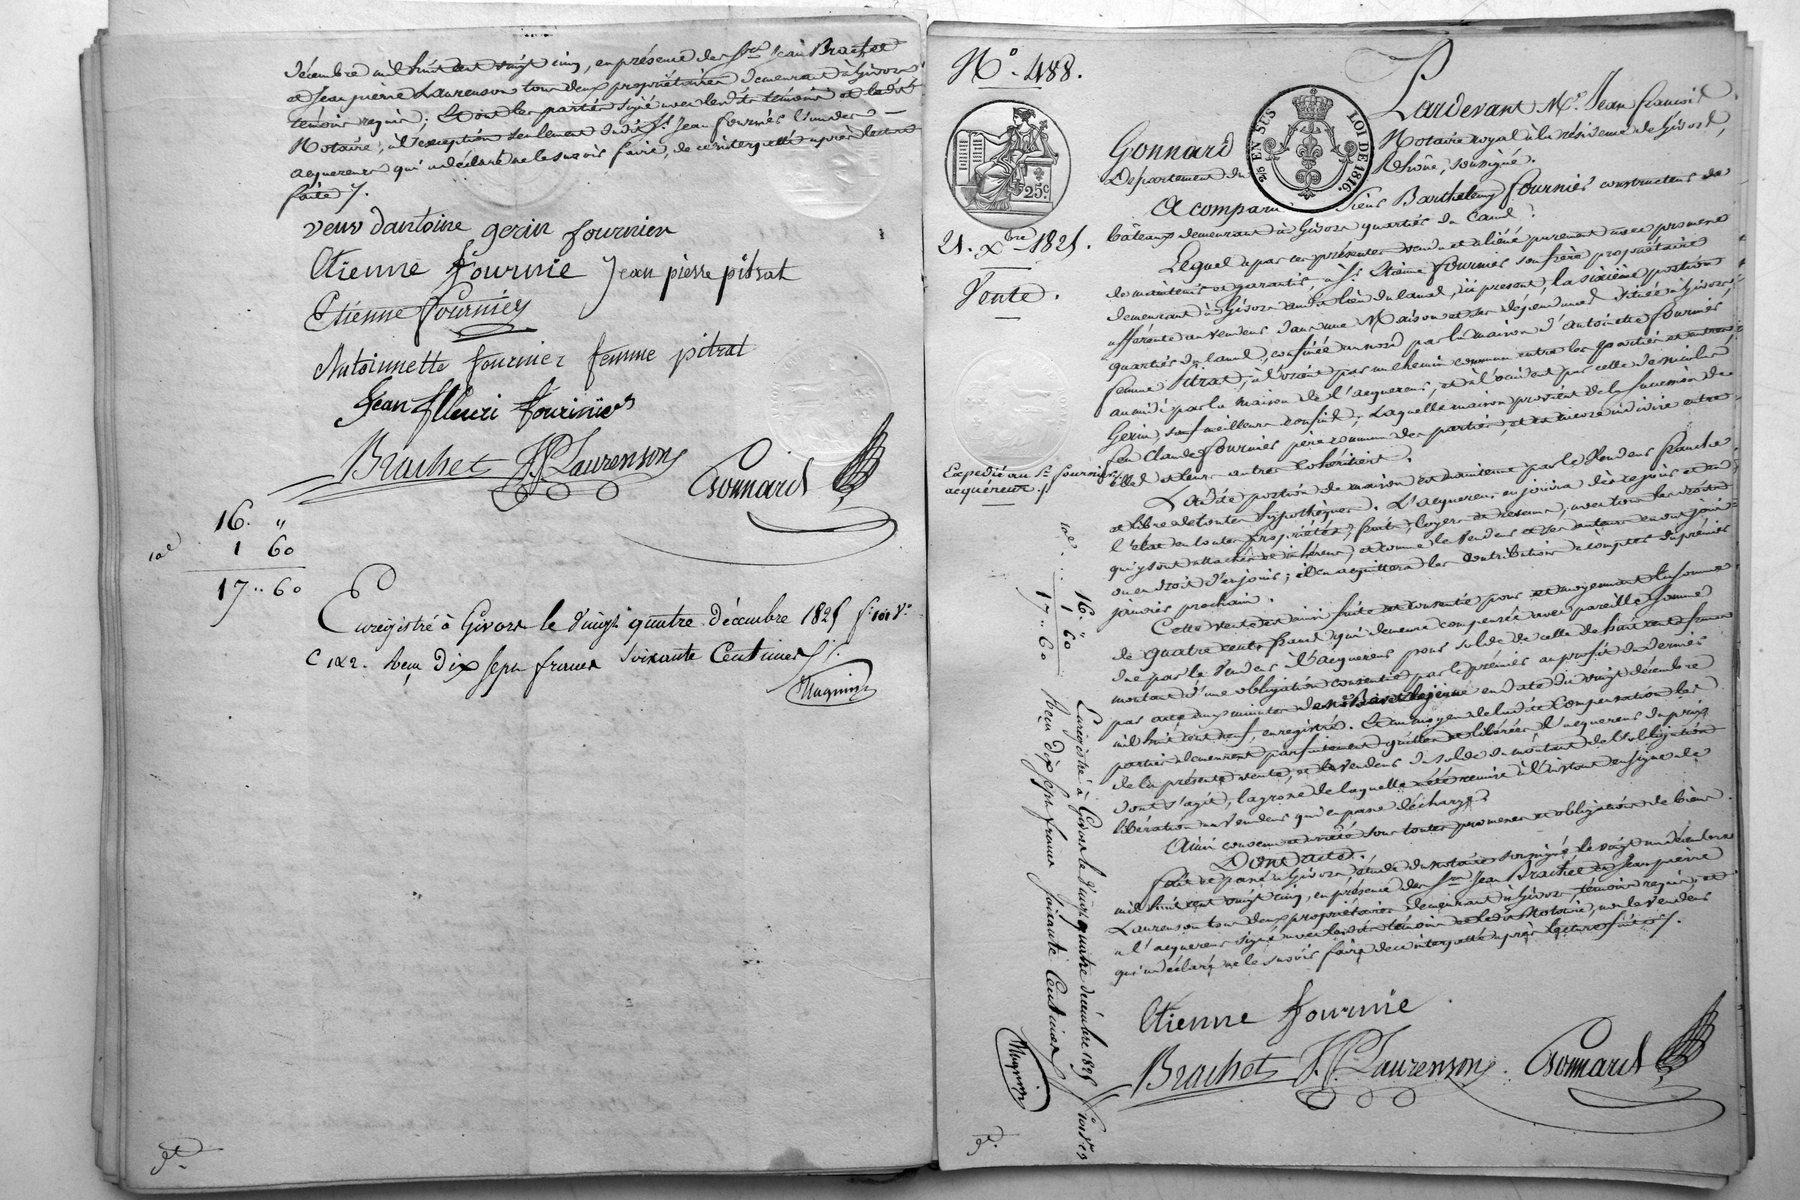 décembre mil huit cent vingt cinq, en présence des Srs Jean Brachet
et Jean pierre Laurenson tous deux propriétaires demeurant à Givors
témoins requis; Et ont les parties signé avec lesdits témoins et ledit
Notaire, à l'exception seulement dudit Sr. Jean fournier l'un des
acquereurs qui a déclaré ne le savoir faire, de ce interpellé après lecture
faite ./.
veuv dantoine gerin fournier
Etienne fournie Jean pierre pitrat
Etienne Fournier
Antoinnette fournier femme pitrat
Jean flleuri fournier
Brachet JP Laurenson Gonnard
16. "
10e 1 60
17.. 60
Enregistré à Givors le vingt quatre décembre 1825 fo. 101 Vo.
C 1 & 2. Reçu dix sept francs soixante centimes ./.
Mugnier
No. 488.
25c.
26 EN SUS
LOI DE 1816.
21. Xbre 1825.
Vente.
Expédié au Sr. fournier
acquéreur ./.
Pardevant Me. Jean francois
Gonnard Notaire royal à la résidence de Givors,
Département du Rhône, soussigné.
A comparu Sieur Barthelemy fournier constructeur de
bâteaux demeurant à Givors quartier du Canal.
Lequel a par ces présentes vendu et aliéné purement avec promesse
de maintenir et garantir, à Sr. Etienne fournier son frère propriétaire
demeurant à Givors audit lieu du Canal, ici présent, la sixième portion
afférante au vendeur dans une Maison et ses dépendances située à Givors
quartier du Canal, confinée au nord par la maison d'Antoinette fournier
femme Pitrat, à l'orient par un chemin commun entre les parties et autres
au midi par la maison de l'acquereur, et à l'occident par celle de
Gerin, sauf meilleurs confins; Laquelle maison provient de la succession de
feu Claude fournier père commun des parties, et est encore indivise entre
elles et leurs autres Cohéritiers.
Ladite portion de maison est maintenue par le Vendeur franche
et libre de toutes hypothèques. L'acquereur en jouira dès ce jour et en
l'état en toutes propriétés, fruits, loyers et revenus, avec tous les droits
qui y sont attachés et inhérens, et comme le Vendeur et ses auteurs en ont joui
ou eu droit d'en jouir; il en acquittera les contributions à compter du premier
janvier prochain.
Cette vente est ainsi faite et consentie pour et moyennant la somme
de quatre cents francs qui demeure compensée avec pareille somme
due par le Vendeur à l'acquereur pour solde de celle de huit cent francs
montant d'une obligation consentie par le premier au profit du dernier
par acte aux minutes de en date du vingt décembre
mil huit cent neuf, enregistré. Et au moyen de ladite Compensation les
parties demeurent parfaitement quittes et libérées, l'acquereur du prix
de la présente vente, et le vendeur du solde du montant de l'obligation
dont s'agit, la grosse de laquelle a été remise à l'instant en signe de
libération au Vendeur qui en passe décharge.
Ainsi convenu et arrêté sous toutes promesses et obligations de biens.
Dont acte.
Fait et passé à Givors étude du notaire soussigné le vingt un décembre
mil huit cent vingt cinq, en présence des Srs Jean Brachet et Jean pierre
Laurenson tous deux propriétaires demeurant à Givors témoins requis, et
a l'acquereur signé avec lesdits témoins et ledit Notaire, non le Vendeur
qui a déclaré ne le savoir faire de ce interpellé après lecture faite ./.
Etienne fournie
Brachet JP Laurenson Gonnard
10e. 16. "
1 60
17.. 60
Enregistré à Givors le vingt quatre décembre 1825 fo
Reçu dix sept francs soixante centimes
Mugnier